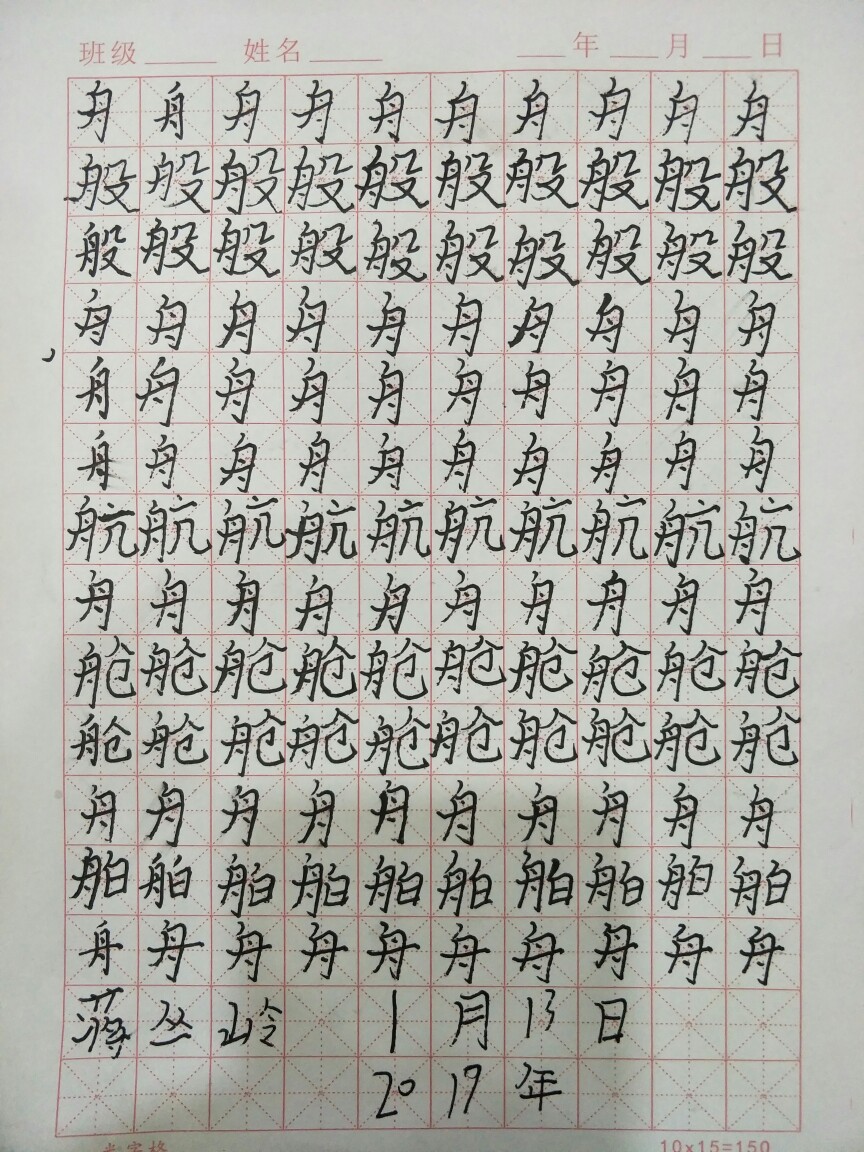 班级 姓名 年 月 日
舟舟舟舟舟舟舟舟舟舟
般般般般般般般般般般
般般般般般般般般般般
舟舟舟舟舟舟舟舟舟舟
舟舟舟舟舟舟舟舟舟舟
舟舟舟舟舟舟舟舟舟舟
航航航航航航航航航航
舟舟舟舟舟舟舟舟舟舟
舱舱舱舱舱舱舱舱舱舱
舱舱舱舱舱舱舱舱舱舱
舟舟舟舟舟舟舟舟舟舟
舶舶舶舶舶舶舶舶舶舶
舟舟舟舟舟舟舟舟舟舟
蒋丛岭 1月13日
2019年
10x15=150